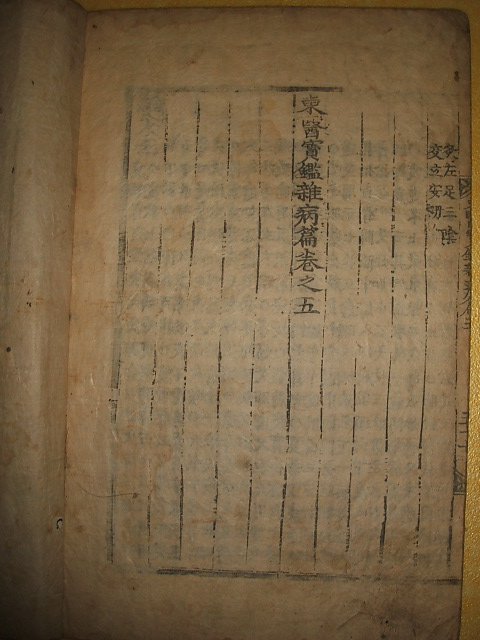 灸左足三陰
交立安切
東醫寶鑑雜病篇卷之五